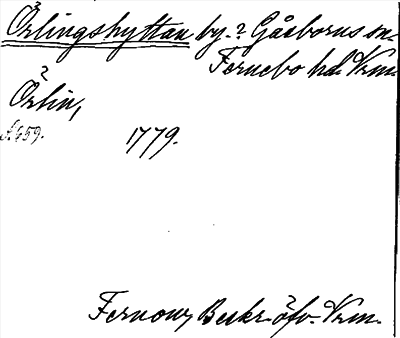 Örlingshyttan by.? Gåsborns sn.
Fernebo hd. Vrm.
Örlin,
s. 659. 1779.
Fernow, Beskr. öfv. Vrm.